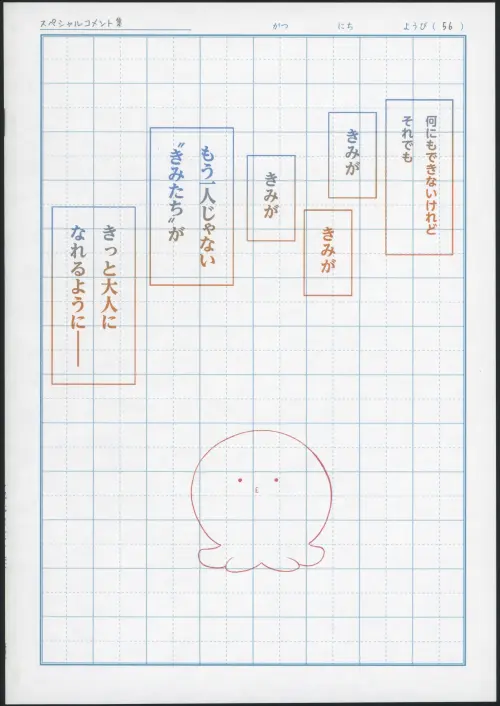 スペシャルコメント集
がつ　にち　ようび（56）
何にもできないけれど
それでも
きみが
きみが
きみが
もう一人じゃない
〝きみたち〟が
きっと大人に
なれるように――